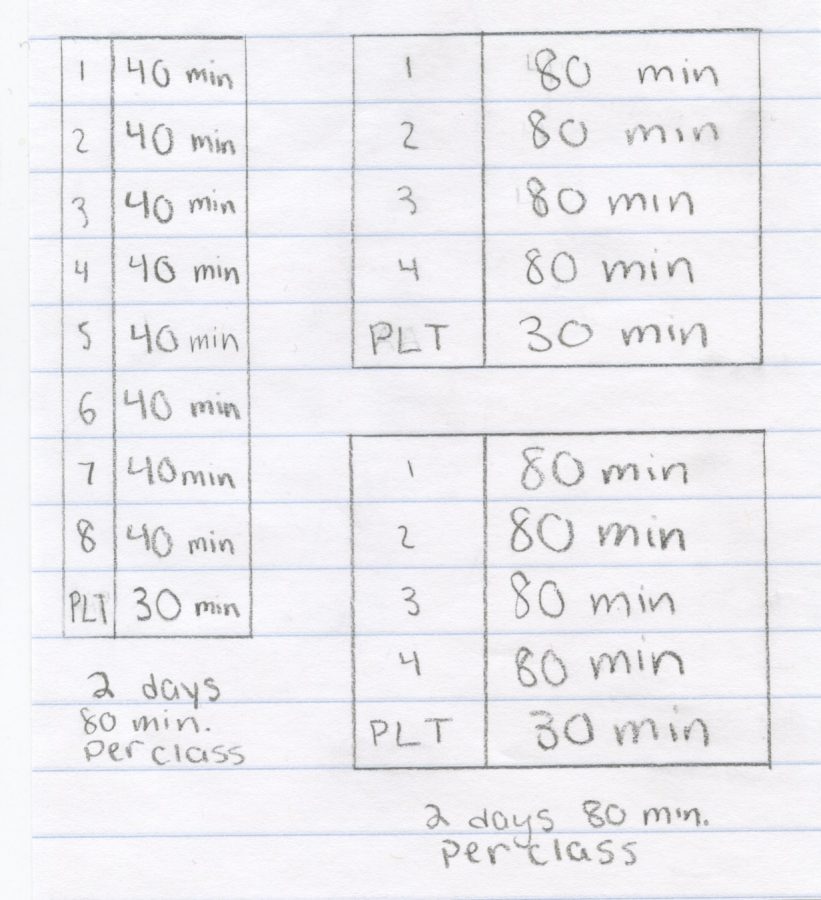 1 40 min
2 40 min
3 40 min
4 40 min
5 40 min
6 40 min
7 40 min
8 40 min
PLT 30 min
2 days
80 min.
per class
1 80 min
2 80 min
3 80 min
4 80 min
PLT 30 min
1 80 min
2 80 min
3 80 min
4 80 min
PLT 30 min
2 days 80 min.
per class